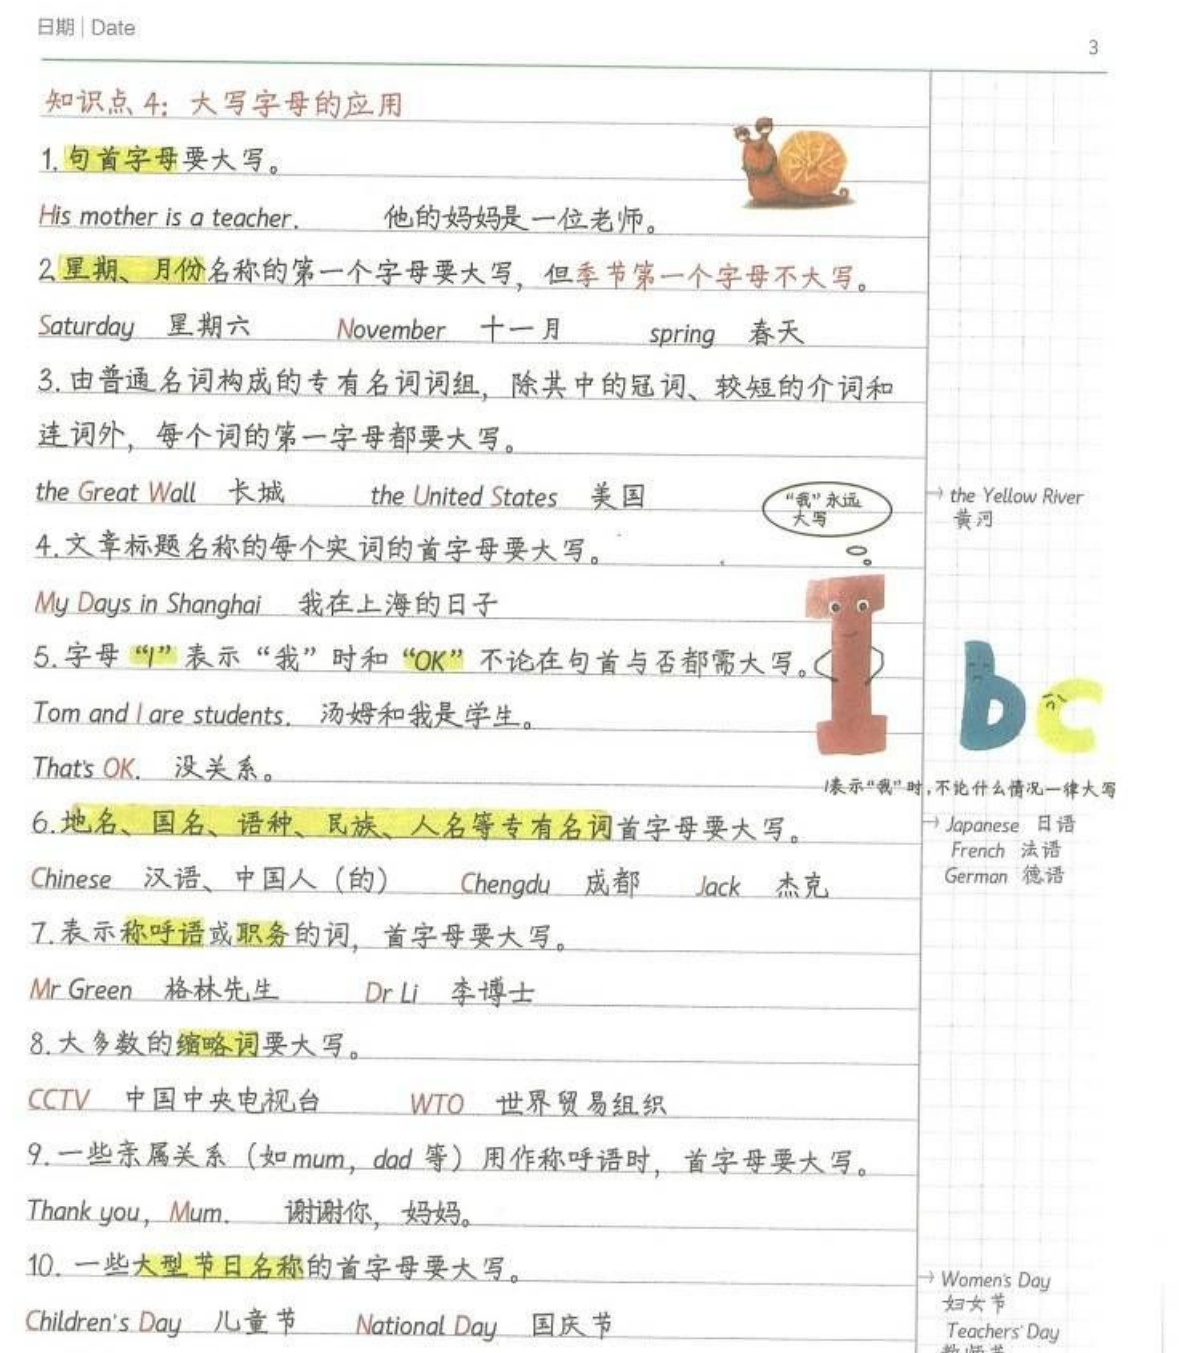 日期 | Date
3
知识点 4: 大写字母的应用
1. 句首字母要大写。
His mother is a teacher. 他的妈妈是一位老师。
2. 星期、月份名称的第一个字母要大写, 但季节第一个字母不大写。
Saturday 星期六 November 十一月 spring 春天
3. 由普通名词构成的专有名词词组, 除其中的冠词、较短的介词和
连词外, 每个词的第一字母都要大写。
the Great Wall 长城 the United States 美国
→ the Yellow River
黄河
“我”永远
大写
4. 文章标题名称的每个实词的首字母要大写。
My Days in Shanghai 我在上海的日子
5. 字母“I”表示“我”时和“OK”不论在句首与否都需大写。
Tom and I are students. 汤姆和我是学生。
That's OK. 没关系。
b c
I表示“我”时,不论什么情况一律大写
6. 地名、国名、语种、民族、人名等专有名词首字母要大写。
→ Japanese 日语
French 法语
German 德语
Chinese 汉语、中国人（的） Chengdu 成都 Jack 杰克
7. 表示称呼语或职务的词, 首字母要大写。
Mr Green 格林先生 Dr Li 李博士
8. 大多数的缩略词要大写。
CCTV 中国中央电视台 WTO 世界贸易组织
9. 一些亲属关系（如 mum, dad 等）用作称呼语时, 首字母要大写。
Thank you, Mum. 谢谢你, 妈妈。
10. 一些大型节日名称的首字母要大写。
Children's Day 儿童节 National Day 国庆节
→ Women's Day
妇女节
Teachers' Day
教师节